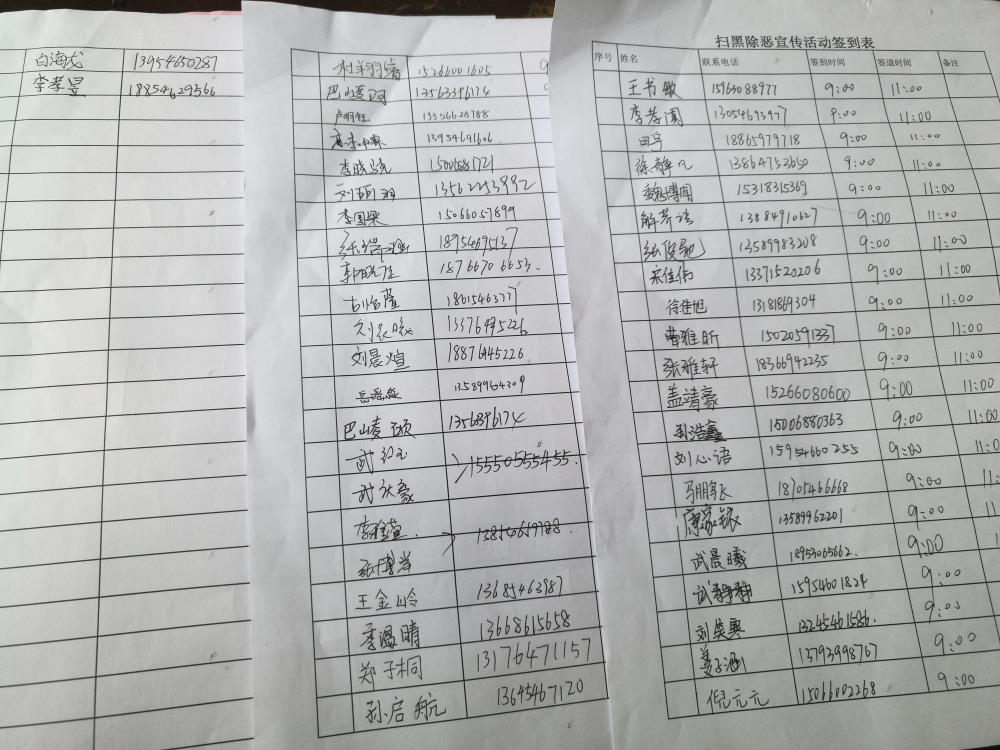 白海龙 13954650287
李孝昱 18854629566
15266001605
巴山 13563396174
13356628788
13954691606
李晓 15005881721
刘 13562253992
李国梁 15066057899
18954695137
郭晓 18766706653.
怡萱 18615463777
刘 13376495226
刘晨煊 18876445226
岳 13589964309
巴山 13563396174
武 15550555455.
武
李 13854619788.
张博
王金岭 13685463987
李温晴 13668615658
郑子桐 13176471157
孙启航 13645467120
扫黑除恶宣传活动签到表
序号 姓名 联系电话 签到时间 签退时间 备注
王书敏 15963088977 9:00 11:00
李孝国 13054693977 9:00 11:00
田宇 18865979718 9:00 11:00
徐静凡 13864753650 9:00 11:00
魏博闻 15318315369 9:00 11:00
解 13884910627 9:00 11:00
张俊驰 13589983208 9:00 11:00
宋佳伟 13371520206 9:00 11:00
徐佳旭 13181869304 9:00 11:00
曹雅昕 15020591337 9:00 11:00
张雅轩 18366942235 9:00 11:00
盖靖豪 15266080600 9:00 11:00
浩鑫 15006880363 9:00 11:0
刘心语 15954660255 9:00 11:0
马鹏飞 18705466668 9:00 11:
康家铭 13589962201 9:00
武晨曦 18953065662. 9:00
武静 15954601824 9:00
刘奕 13245461586. 9:00
姜子涵 13793998767 9:00
倪元元 15066002268 9:00